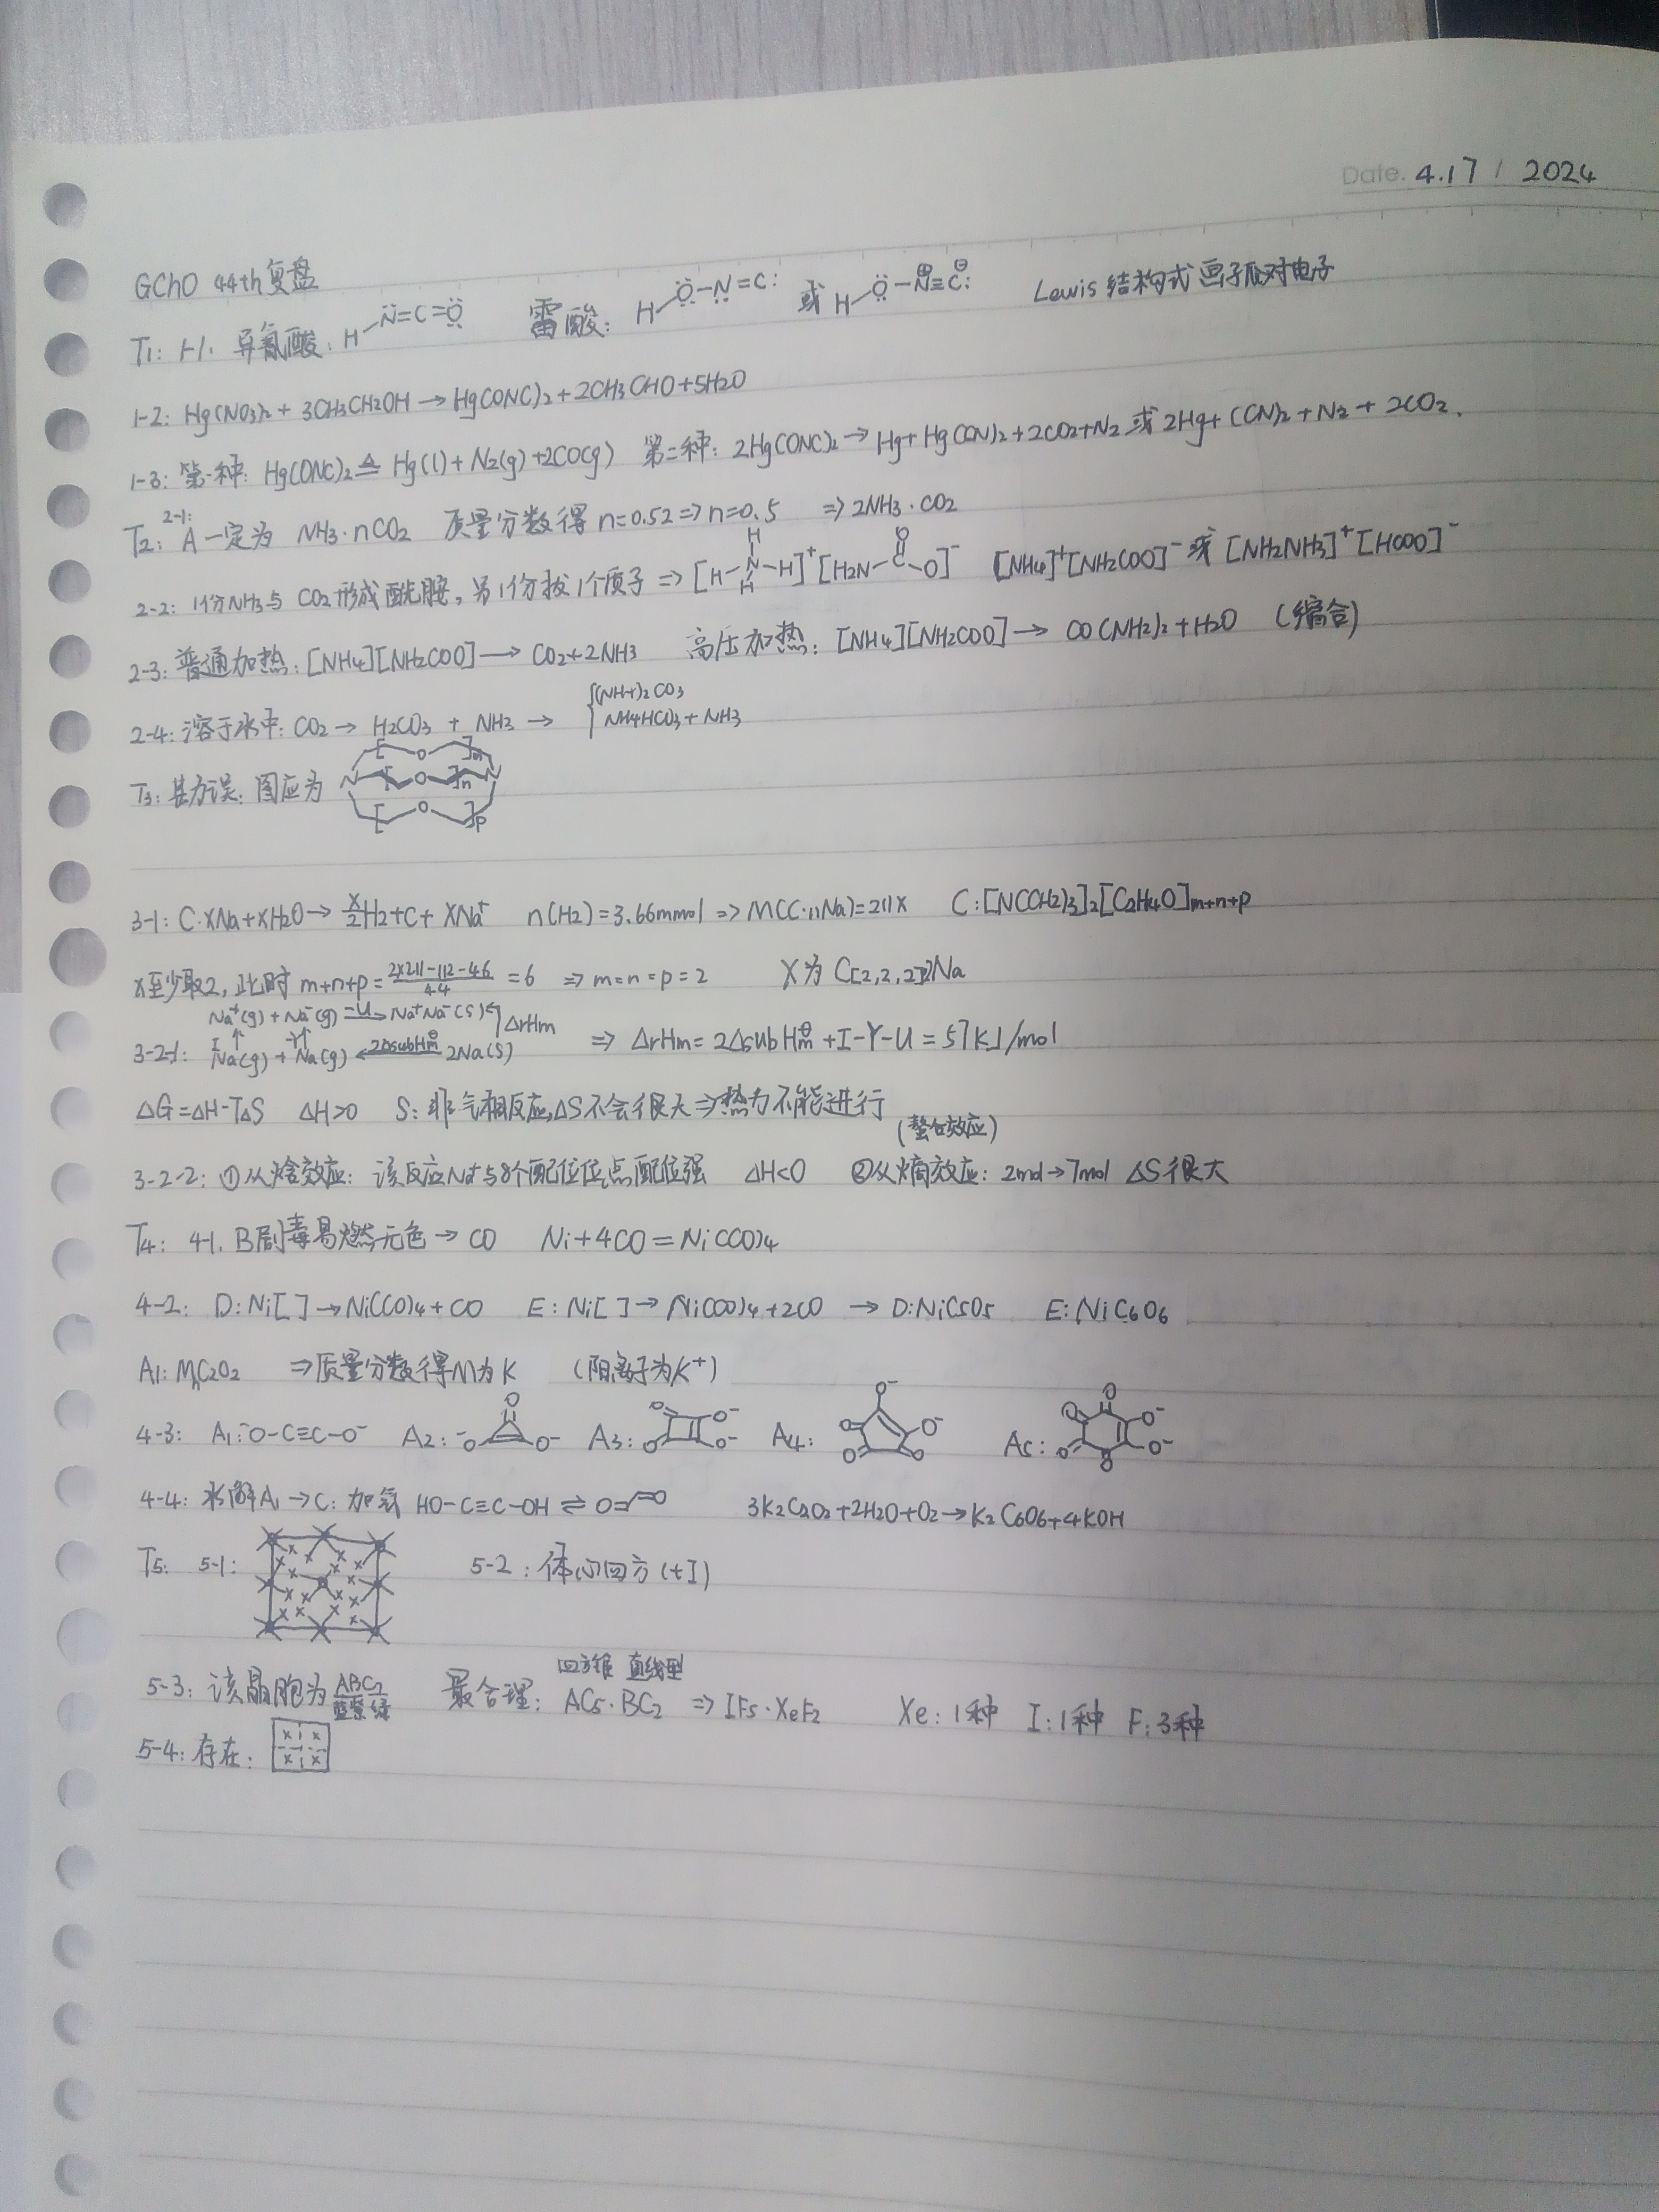 Date. 4.17 / 2024
GChO 44th复盘
T1: 1-1: 异氰酸: H N=C=O 雷酸: H O-N=C: 或 H O-N≡C: ⊕ ⊖ Lewis结构式画孤对电子
1-2: Hg(NO3)2 + 3CH3CH2OH → Hg(ONC)2 + 2CH3CHO + 5H2O
1-3: 第一种: Hg(ONC)2 ≜ Hg(l) + N2(g) + 2CO(g) 第二种: 2Hg(ONC)2 → Hg + Hg(CN)2 + 2CO2 + N2 或 2Hg + (CN)2 + N2 + 2CO2.
T2: 2-1: A一定为 NH3·nCO2 质量分数得 n=0.52 ⇒ n=0.5 ⇒ 2NH3·CO2
2-2: 1份NH3与CO2形成酰胺, 另1份拔1个质子 ⇒ [H-N-H H H]+ [H2N-C-O O]- [NH4]+[NH2COO]- 或 [NH2NH3]+[HCOO]-
2-3: 普通加热: [NH4][NH2COO] → CO2+2NH3 高压加热: [NH4][NH2COO] → CO(NH2)2 + H2O (缩合)
2-4: 溶于水中: CO2 → H2CO3 + NH3 → { (NH4)2CO3
NH4HCO3 + NH3
T3: 勘误: 图应为 N [ O ]m [ O ]n [ O ]p N
3-1: C·xNa + xH2O → x/2 H2 + C + xNa+ n(H2)=3.66mmol ⇒ M(C·nNa)=211x C: [N(CH2)3]2[C2H4O]m+n+p
x至少取2, 此时 m+n+p = (2×211-112-46)/44 = 6 ⇒ m=n=p=2 X为 C[2,2,2]Na
Na+(g) + Na-(g) -U→ Na+Na-(s) ΔrHm
3-2-1: I↑ -Y↑ Na(g) + Na(g) ← 2ΔsubHm⊖ 2Na(s) ⇒ ΔrHm = 2ΔsubHm⊖ + I-Y-U = 57kJ/mol
ΔG=ΔH-TΔS ΔH>0 S: 非气相反应, ΔS不会很大 ⇒ 热力不能进行
(螯合效应)
3-2-2: ①从焓效应: 该反应Na+与8个配位位点配位强 ΔH<0 ②从熵效应: 2mol→7mol ΔS很大
T4: 4-1. B剧毒易燃无色 → CO Ni+4CO = Ni(CO)4
4-2: D: Ni[ ] → Ni(CO)4 + CO E: Ni[ ] → Ni(CO)4 + 2CO → D: NiC5O5 E: NiC6O6
A1: MnC2O2 ⇒ 质量分数得M为K (阳离子为K+)
4-3: A1: -O-C≡C-O- A2: O -O O- A3: O O O- O- A4: O- O- O O O A5: O O O O O- O-
4-4: 水解A1 → C: 加氢 HO-C≡C-OH ⇌ O= =O 3K2C2O2+2H2O+O2 → K2C6O6+4KOH
T5: 5-1: 5-2: 体心四方(tI)
四方锥 直线型
5-3: 该晶胞为 ABC7 蓝紫绿 最合理: AC5·BC2 ⇒ IF5·XeF2 Xe: 1种 I: 1种 F: 3种
5-4: 存在: